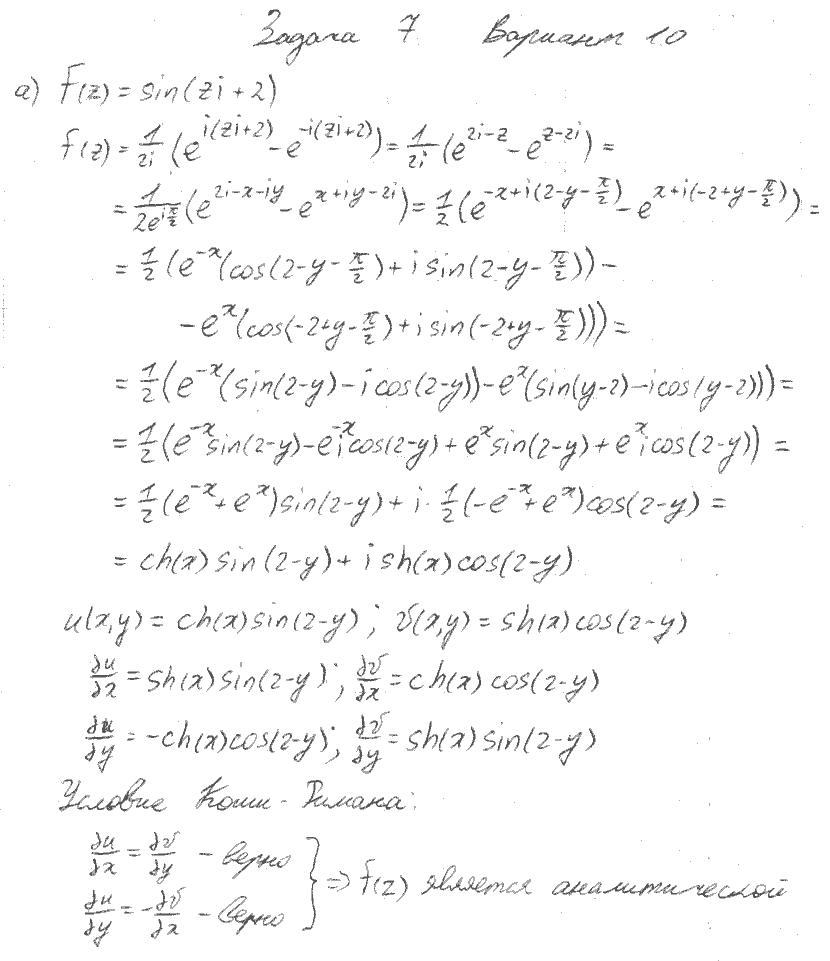 Задача 7 Вариант 10
a) F(z) = sin(zi+2)
f(z) = 1/2i (e^{i(zi+2)} - e^{-i(zi+2)}) = 1/2i (e^{2i-z} - e^{z-2i}) =
= 1/(2e^{iπ/2}) (e^{2i-x-iy} - e^{x+iy-2i}) = 1/2 (e^{-x+i(2-y-π/2)} - e^{x+i(-2+y-π/2)}) =
= 1/2 (e^{-x}(cos(2-y-π/2) + i sin(2-y-π/2)) -
- e^{x}(cos(-2+y-π/2) + i sin(-2+y-π/2))) =
= 1/2 (e^{-x}(sin(2-y) - i cos(2-y)) - e^{x}(sin(y-2) - i cos(y-2))) =
= 1/2 (e^{-x} sin(2-y) - e^{-x} i cos(2-y) + e^{x} sin(2-y) + e^{x} i cos(2-y)) =
= 1/2 (e^{-x} + e^{x}) sin(2-y) + i · 1/2 (-e^{-x} + e^{x}) cos(2-y) =
= ch(x) sin(2-y) + i sh(x) cos(2-y)
u(x,y) = ch(x) sin(2-y); v(x,y) = sh(x) cos(2-y)
∂u/∂x = sh(x) sin(2-y); ∂v/∂x = ch(x) cos(2-y)
∂u/∂y = -ch(x) cos(2-y); ∂v/∂y = sh(x) sin(2-y)
Условие Коши-Римана:
∂u/∂x = ∂v/∂y - верно
∂u/∂y = -∂v/∂x - верно } ⇒ f(z) является аналитической